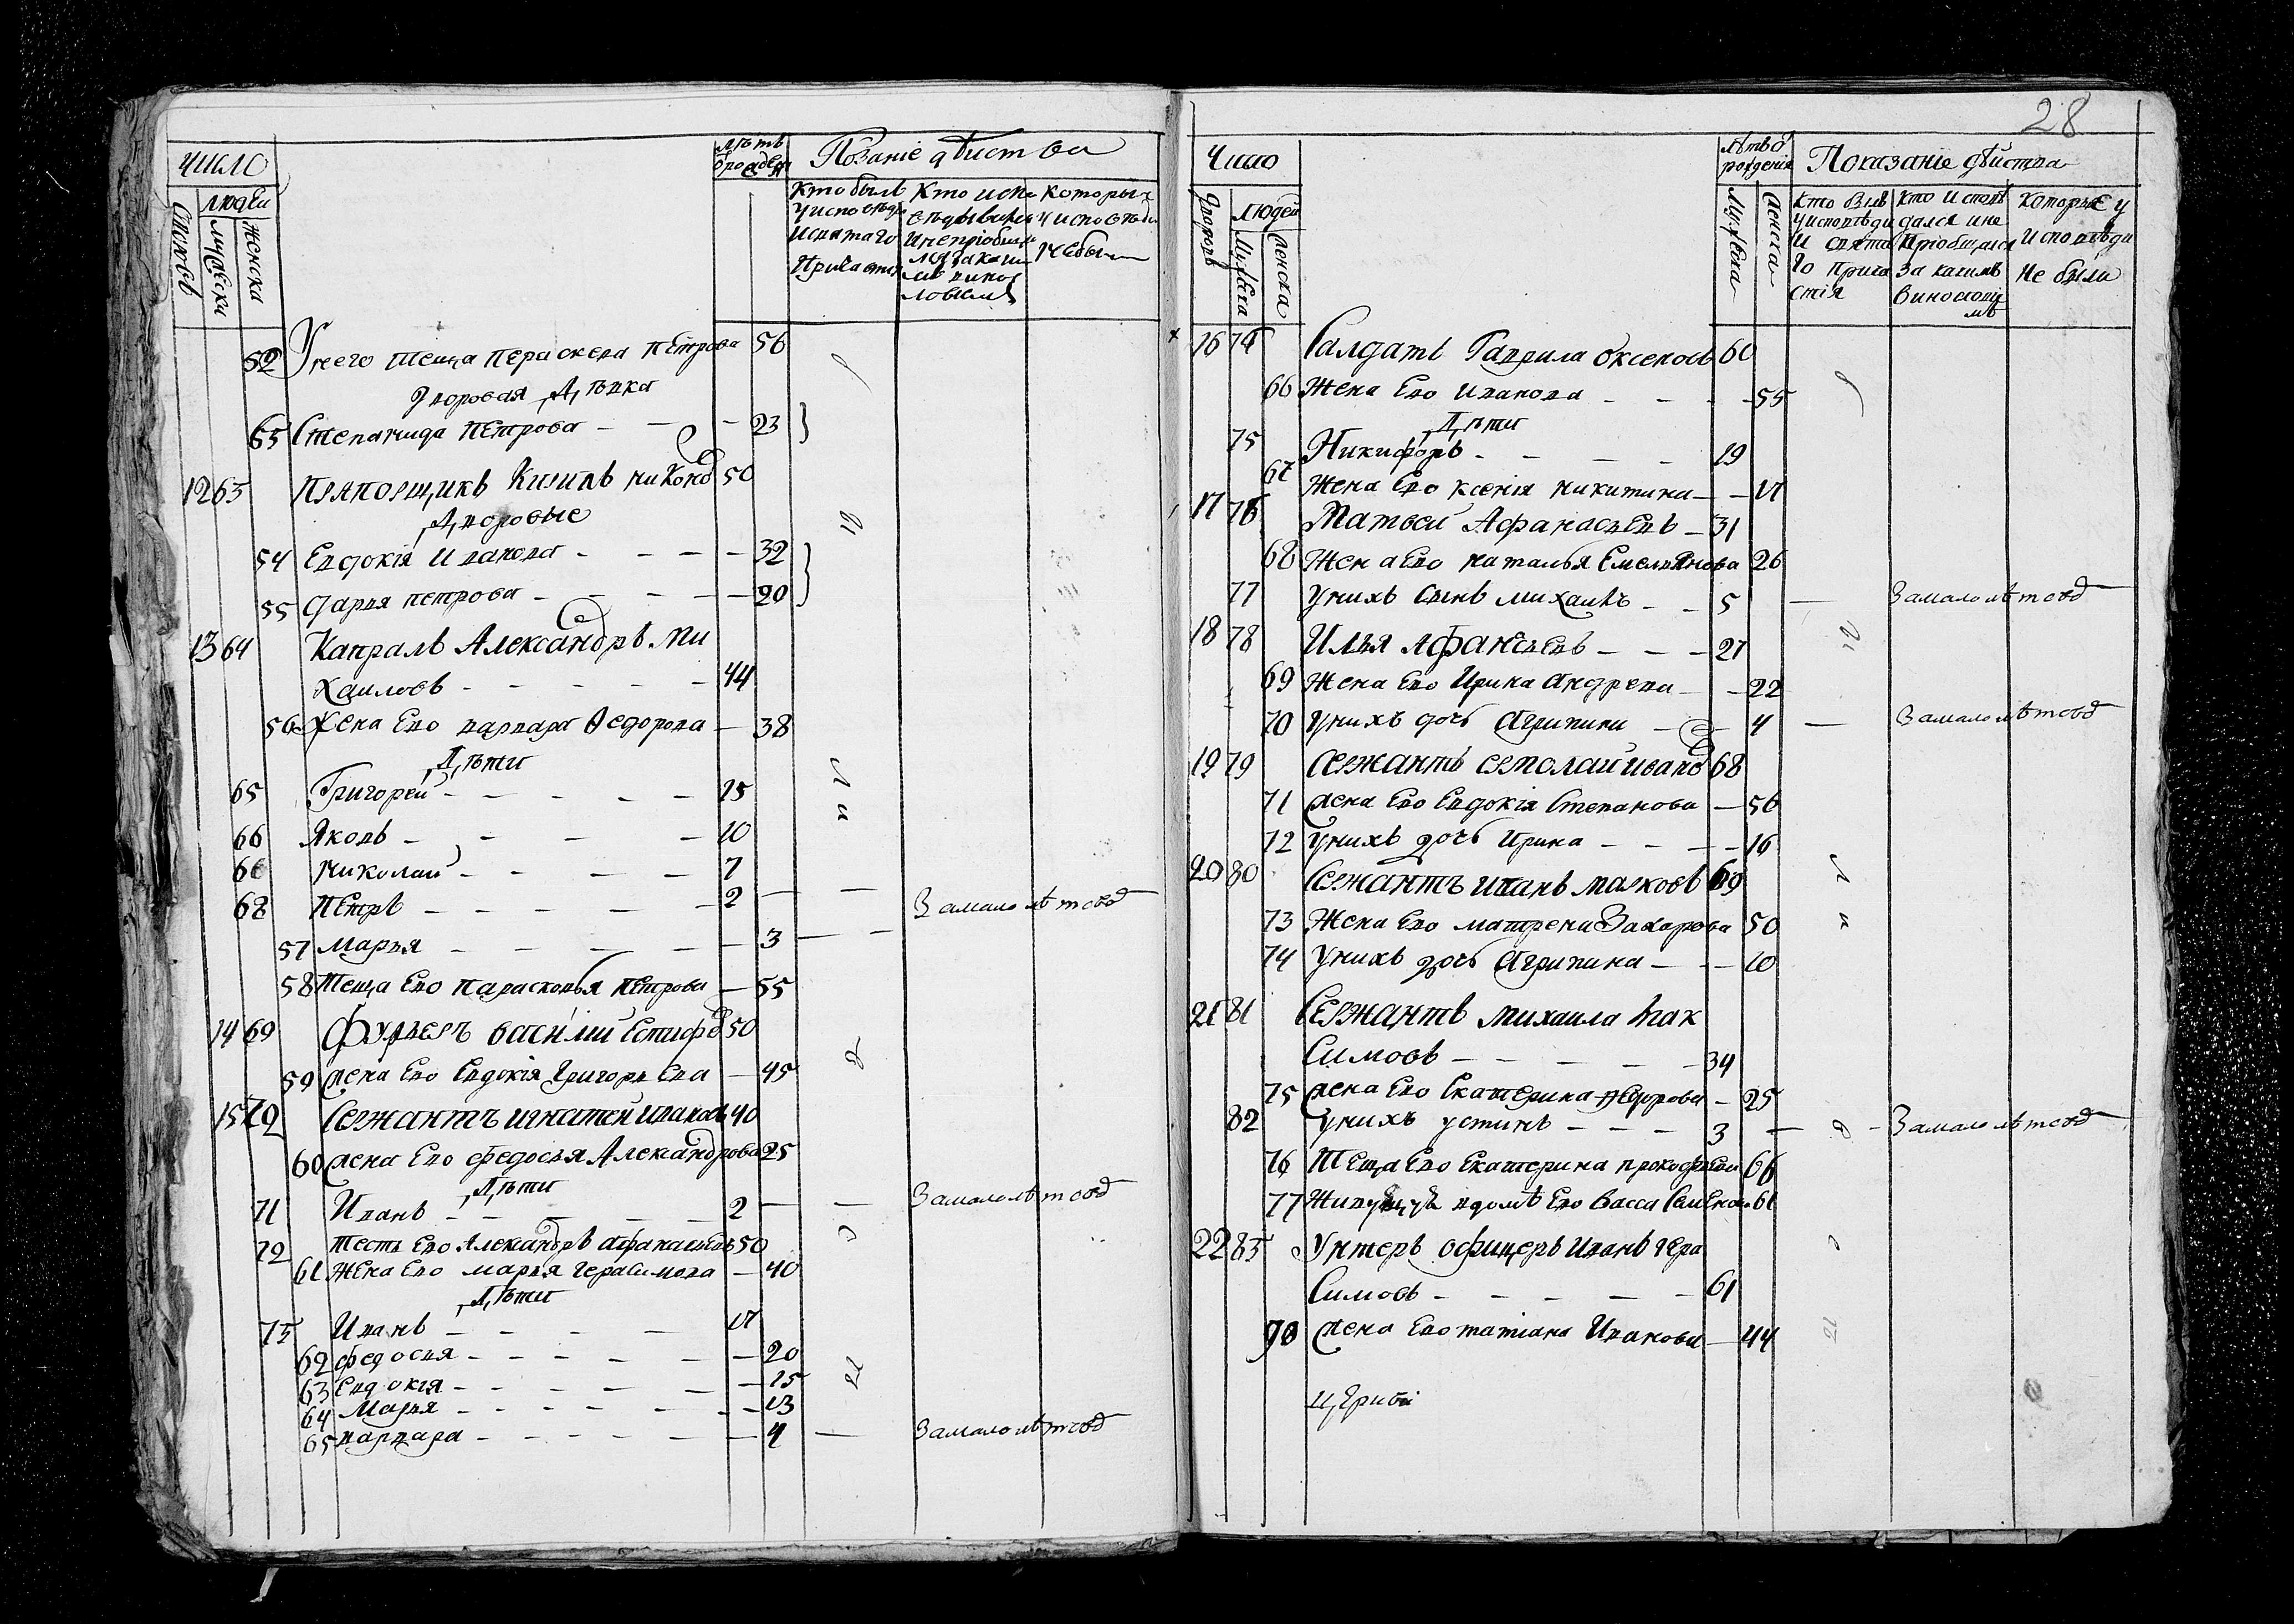 число
людеи
мужеска
женска
лѣтъ
Показаніе дѣиства
Кто былъ
Кто испо
которыя
у исповѣди
не были
52 У него теща Параскева Петрова 56
Здоровая Дѣвка
53 Степанида Петрова – – – 23
12 63 Прапорщикъ Кирилъ Никоно 50
Вдоровые
54 Евдокія Иванова – – – – 32
55 Дарья петрова – – – – 20
13 64 Капралъ Александръ Ми
хаиловъ – – – – – 44
56 Жена Ево варвара Федорова – 38
Дѣти
65 Григорей – – – – – 15
66 Яковъ – – – – 10
Николаи – – – – 7
68 Петръ – – – – – 2 – – За малолѣтсво
57 Марья – – – – – 3 – –
58 Теща Ево Парасковья Петрова – 55
14 69 Фурьеръ Василіи Естифѣ 50
59 жена Ево Евдокія Григорьева – 45
15 70 Сержантъ игнатеи ивановъ 40
60 жена Ево федосья Александрова 25
Дѣти
71 Иванъ – – – – – 2 – – За малолѣтсво
72 тесть Ево Александръ афанасьевъ 50
61 Жена Ево марья герасимова – 40
Дѣти
73 Иванъ – – – – 17
62 федосья – – – – – – 20
63 Евдокія – – – – – – 15
64 Марья – – – – – – 13
65 варвара – – – – – – 4 – За малолѣтсво
28
Число
Дворовъ
Людей
Мужеска
Женска
Лѣтъ
рождения
Мужеска
Женска
Показаніе дѣиства
кто былъ
у исповѣди
и свята
го прича
стія
кто испове
дался и не
приобщался
за какимъ
винословіе
мъ
которые у
исповѣди
не были
16 74 Салдатъ Гаврила Оксеновъ 60
66 Жена Ево Иванова – – – 55
Дѣти
75 Никифоръ – – – – 19
67 Жена Ево ксенія никитина – – 17
17 76 Матвеи Афанасьевъ – 31
68 Жена Ево наталья Емельянова 26
77 У нихъ сынъ михаилъ – – 5 – За малолѣтсво
18 78 Илья Афанасьевъ – – – 27
69 Жена Ево Ирина Андреева – – 22
70 У нихъ дочь Агрипина – – 4 – За малолѣтсво
19 79 Сержантъ ермолаи ивано 68
71 жена Ево Евдокія Степанова – 56
72 У нихъ дочь Ирина – – – – 16
20 80 Сержантъ иванъ марковъ 69
73 Жена Ево матрена Захарова 50
74 У нихъ дочь Агрипина – – – 10
21 81 Сержантъ Михаила мак
симовъ – – – – – 34
75 жена Ево Екатерина Федорова – 25
82 У нихъ устинъ – – – 3 – – За малолѣтсво
76 Теща Ево Екатерина прокофьева 66
77 Живущая вдомѣ Ево Васса Семенова 61
22 83 Унтеръ офицеръ Иванъ гера
симовъ – – – – – 61
жена Ево татіана Иванова – 44